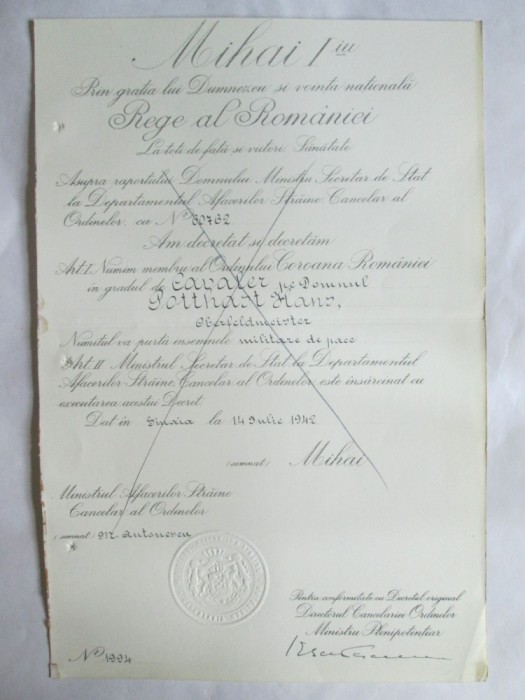 Mihai I iu
Prin gratia lui Dumnezeu si vointa natională
Rege al României
La toti de fată si viitori, Sănătate
Asupra raportului Domnului Ministru Secretar de Stat
la Departamentul Afacerilor Străine, Cancelar al
Ordinelor, cu No 60762
Am decretat si decretăm
Art. I. Numim membru al Ordinului Coroana României
in gradul de Cavaler pe Domnul
Potthast Hans,
Oberfeldmeister
Numitul va purta insemnele militare de pace
Art. II Ministrul Secretar de Stat la Departamentul
Afacerilor Străine, Cancelar al Ordinelor, este insărcinat cu
executarea acestui Decret.
Dat in Sinaia la 14 Iulie 1942
(semnat) Mihai
Ministrul Afacerilor Străine
Cancelar al Ordinelor
(semnat) Antonescu
Pentru conformitate cu Decretul original
Directorul Cancelariei Ordinelor
Ministru Plenipotentiar
No 1994